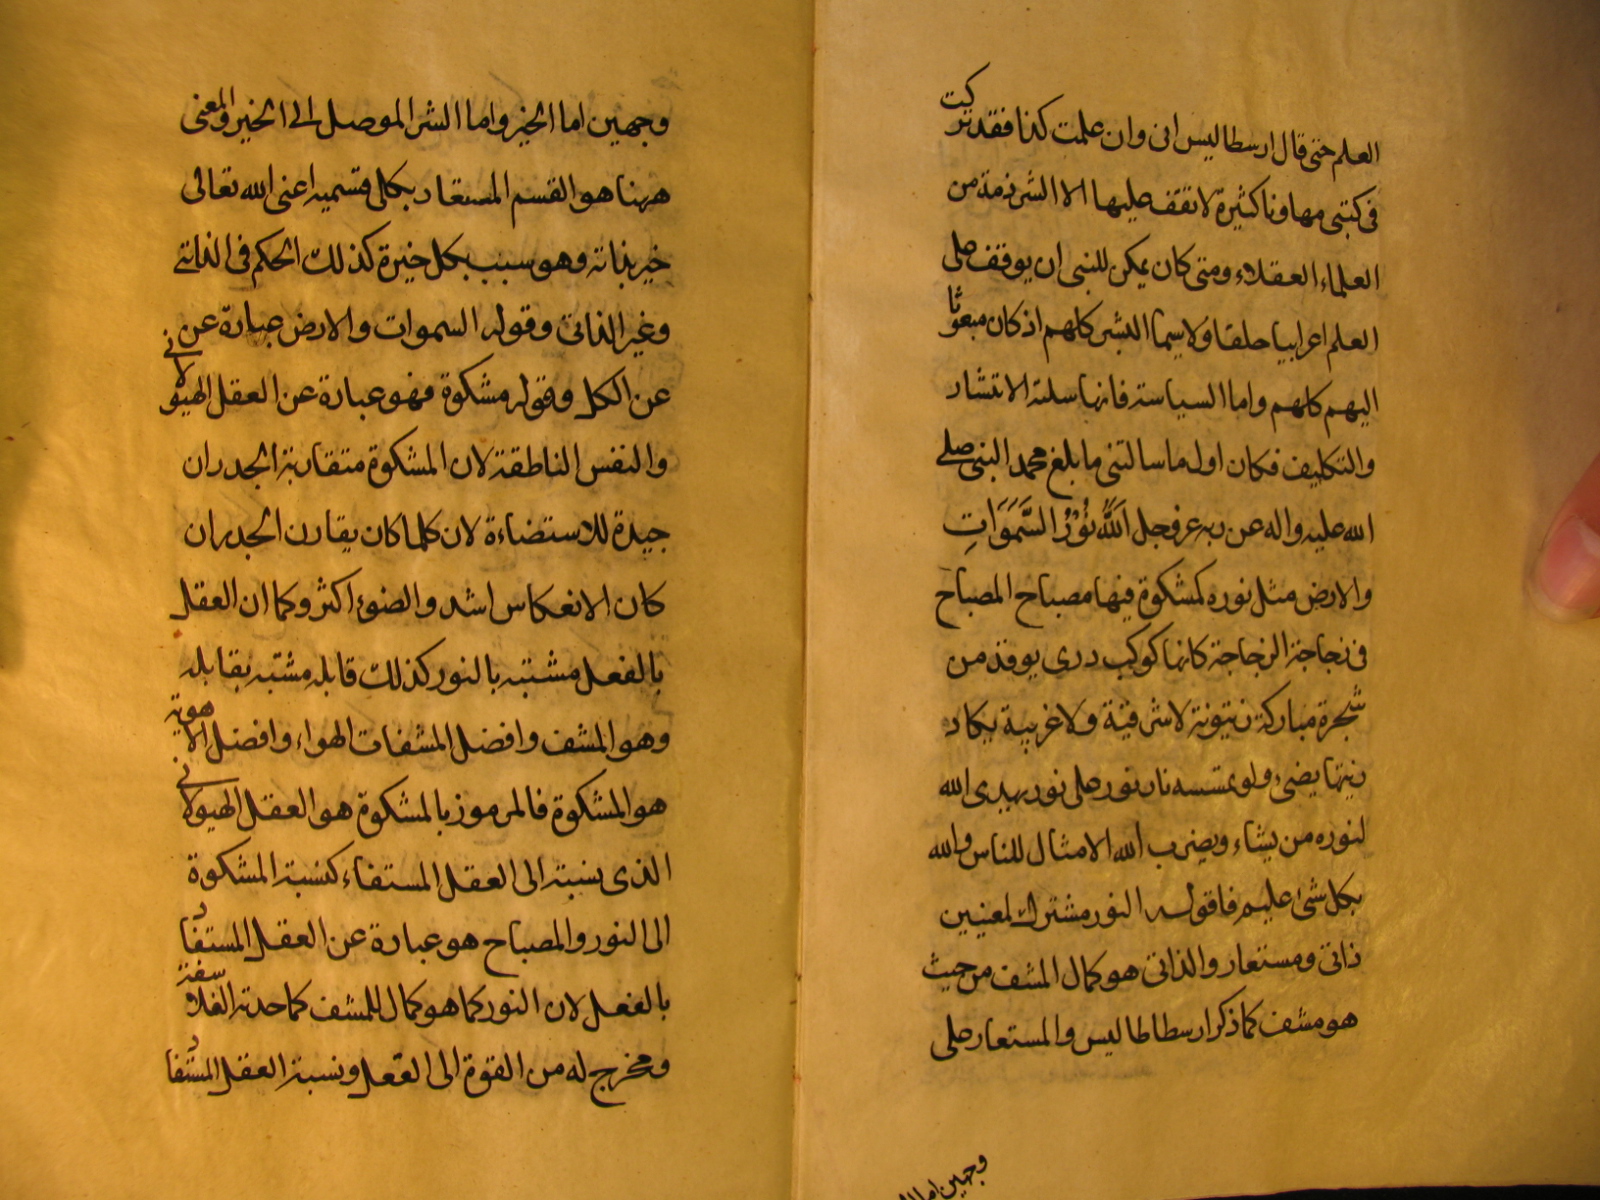 العلم حتى قال ارسطاليس انى وان علمت كذا فقد تركت
فى كتبى مهاونا كثيرة لا تقف عليها الا الشرذمة من
العلماء العقلاء ومتى كان يمكن للنبى ان يوقف على
العلم اعرابيا حلفا ولا سيما البشر كلهم اذ كان مبعوثا
اليهم كلهم واما السياسة فانها سلة الانتشار
والتكليف فكان اول ما سالتنى ما بلغ محمد النبى صلى
الله عليه واله عن ربه عز وجل اللَّه نُوْرُ السَّمَوَاتِ
والارض مثل نوره كمشكوة فيها مصباح المصباح
فى زجاجة الزجاجة كانها كوكب درى يوقد من
شجرة مباركة زيتونة لا شرقية ولا غربية يكاد
زيتها يضىء ولو لم تمسسه نار نور على نور يهدى الله
لنوره من يشاء ويضرب الله الامثال للناس والله
بكل شئ عليم فاقول النور مشترك لمعنيين
ذاتى ومستعار والذاتى هو كمال المشف من حيث
هو مشف كما ذكر ارسطاطاليس والمستعار على
وجهين اما
وجهين اما الخير واما الشر الموصل الى الخير والمعنى
ههنا هو القسم المستعار بكلى قسميه اعنى الله تعالى
خير بذاته وهو سبب بكل خيرة كذلك الحكم فى الذاتى
وغير الذاتى وقوله السموات والارض عبارة عن
عن الكل وقوله مشكوة فهو عبارة عن العقل الهيولانى
والنفس الناطقة لان المشكوة متقاربة الجدران
جيدة للاستضاءة لان كلما كان يقارن الجدران
كان الانعكاس اشد والضوء اكثر وكما ان العقل
بالفعل مشتبه بالنور كذلك قابله مشتبه بقابله
وهو المشف وافضل المشفات الهواء وافضل الاهوية
هو المشكوة فالمرموز بالمشكوة هو العقل الهيولانى
الذى نسبته الى العقل المستفاد كنسبة المشكوة
الى النور والمصباح هو عبارة عن العقل المستفاد
بالفعل لان النور كما هو كمال للمشف كما حدته الفلاسفة
ومخرج له من القوة الى الفعل ونسبة العقل المستفاد